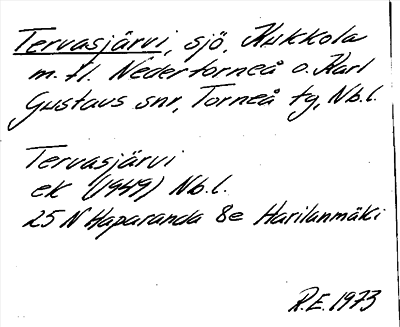 Tervasjärvi, sjö, Kukkola
m. fl. Nedertorneå o. Karl
Gustavs snr, Torneå tg, Nb.l.
Tervasjärvi
ek (1949) Nb.l.
25 N Haparanda 8e Harilanmäki
R.E. 1973